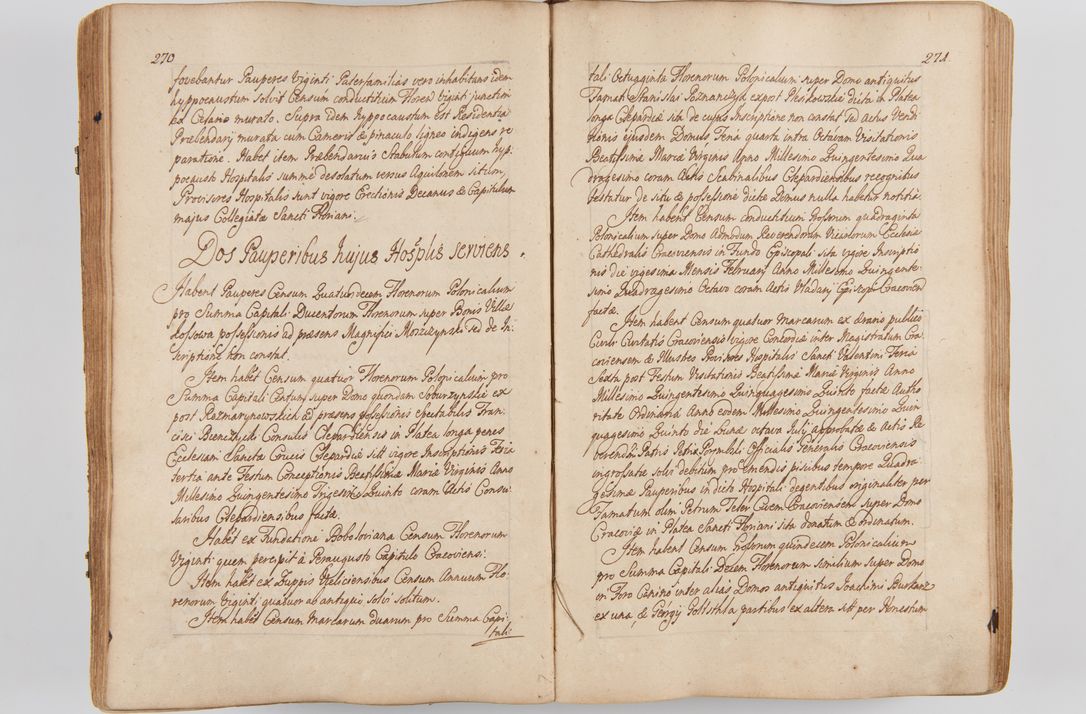 270
fovebantur Pauperes Viginti Paterfamilias vero inhabitans idem
hypocaustum solvit Censum conductitium Floren Viginti junctim
ex Celario murato. Supra idem hypocaustum est Residentia
Præbendarij murata cum Cameris & pinaculo ligneo indigens re
paratione. Habet item Præbendarius Stabulum contiguum hyp
pocausto Hospitalis summe desolatum versus Aquilonem situm,
Provisores Hospitalis sunt vigore Erectionis Decanus & Capitulum
majus Collegiatæ Sancti Floriani.
Dos Pauperibus hujus Hosplis serviens.
Habent Pauperes Censum Quatuordecem Florenorum Polonicalium
pro Summa Capitali Ducentorum Florenorum super Bonis Villæ
possessionis ad præsens Magnifici Morzizynski sed de In
scriptione non constat.
Item habet Censum quatuor Florenorum Polonicalium pro
Summa Capitali Centum super Domo quondam Soburzynskie ex
post Rozmarynowskich ad præsens possessionis Spectabilis Fran
cisci Bieniedzki Consulis Clepardiensis in Platea longa penes
Ecclesiam Sanctæ Crucis Clepardiæ sitt vigore Inscriptionis Feria
tertia ante Festum Conceptionis Beatissimæ Mariæ Virginis Anno
Millesimo Quingentesimo Trigesimo Quinto coram Actis Consu
laribus Clepardiensibus factæ.
Habet ex Fundatione Boboloviana Censum Florenorum
Viginti quem percipit à Peraugusto Capitulo Cracoviensi.
Item habet ex Zuppis Veliciensibus Censum Annuum Flo
renorum Viginti quatuor ab antiquo solvi solitum.
Item habet Censum Marcarum duarum pro Summa Capi
tali
271
tali Octuaginta Florenorum Polonicalium super Domo antiquitus
Famati Stanislai Poznanczyk expost Pleskowska dicta in Platea
longa Clepardiæ sita de cujus Inscriptione non constat sed Actus Vendi
tionis ejusdem Domus Feria quarta intra Octavam Visitationis
Beatissimæ Mariæ Virginis Anno Millesimo Quingentesimo Qua
dragesimo coram Actis Scabinalibus Clepardiensibus recognitus
testatur de situ & possessione dictæ Domus nulla habetur notitia.
Item habent Censum conductitium Florenorum quadraginta
Polonicalium super Domo Admodum Reverendorum Vicariorum Ecclesiæ
Cathedralis Cracoviensis in Fundo Episcopali sita vigore Inscriptio
nis die vigesima Mensis Februarij Anno Millesimo Quingente
simo Quadragesimo Octavo coram Actis Vladarij Episcopi Cracovien
factæ.
Item habent Censum quatuor Marcarum ex ærario publico
Civili Civitatis Cracoviensis vigore Concordiæ inter Magistratum Cra
coviensem & Illustres Provisores Hospitalis Sancti Valentini Feria
Sexta post Festum Visitationis Beatissimæ Mariæ Virginis Anno
Millesimo Quingentesimo Quinquagesimo Quinto factæ Autho
ritate Ordinaria Anno eodem Millesimo Quingentesimo Quin
quagesimo Quinto die Lunæ octava Julij approbatæ & Actis Re
verendi Patris Petri Officialis Generalis Cracoviensis
ingrossatæ solvi debitum pro emendis piscibus tempore Quadra
gesimæ Pauperibus in dicto Hospitali degentibus originaliter per
Famatum olim Petrum Teter Civem Cracoviensem super Domo
Cracoviæ in Platea Sancti Floriani sita donatum & ordinatum.
Item habent Censum Florenorum quindecem Polonicalium
pro Summa Capitali Decem Florenorum similium super Domo
in Foro Canino inter alias Domos antiquitus Joachimi Burkarz
ex una, & Georgij partibus ex altera sitt per Honestum